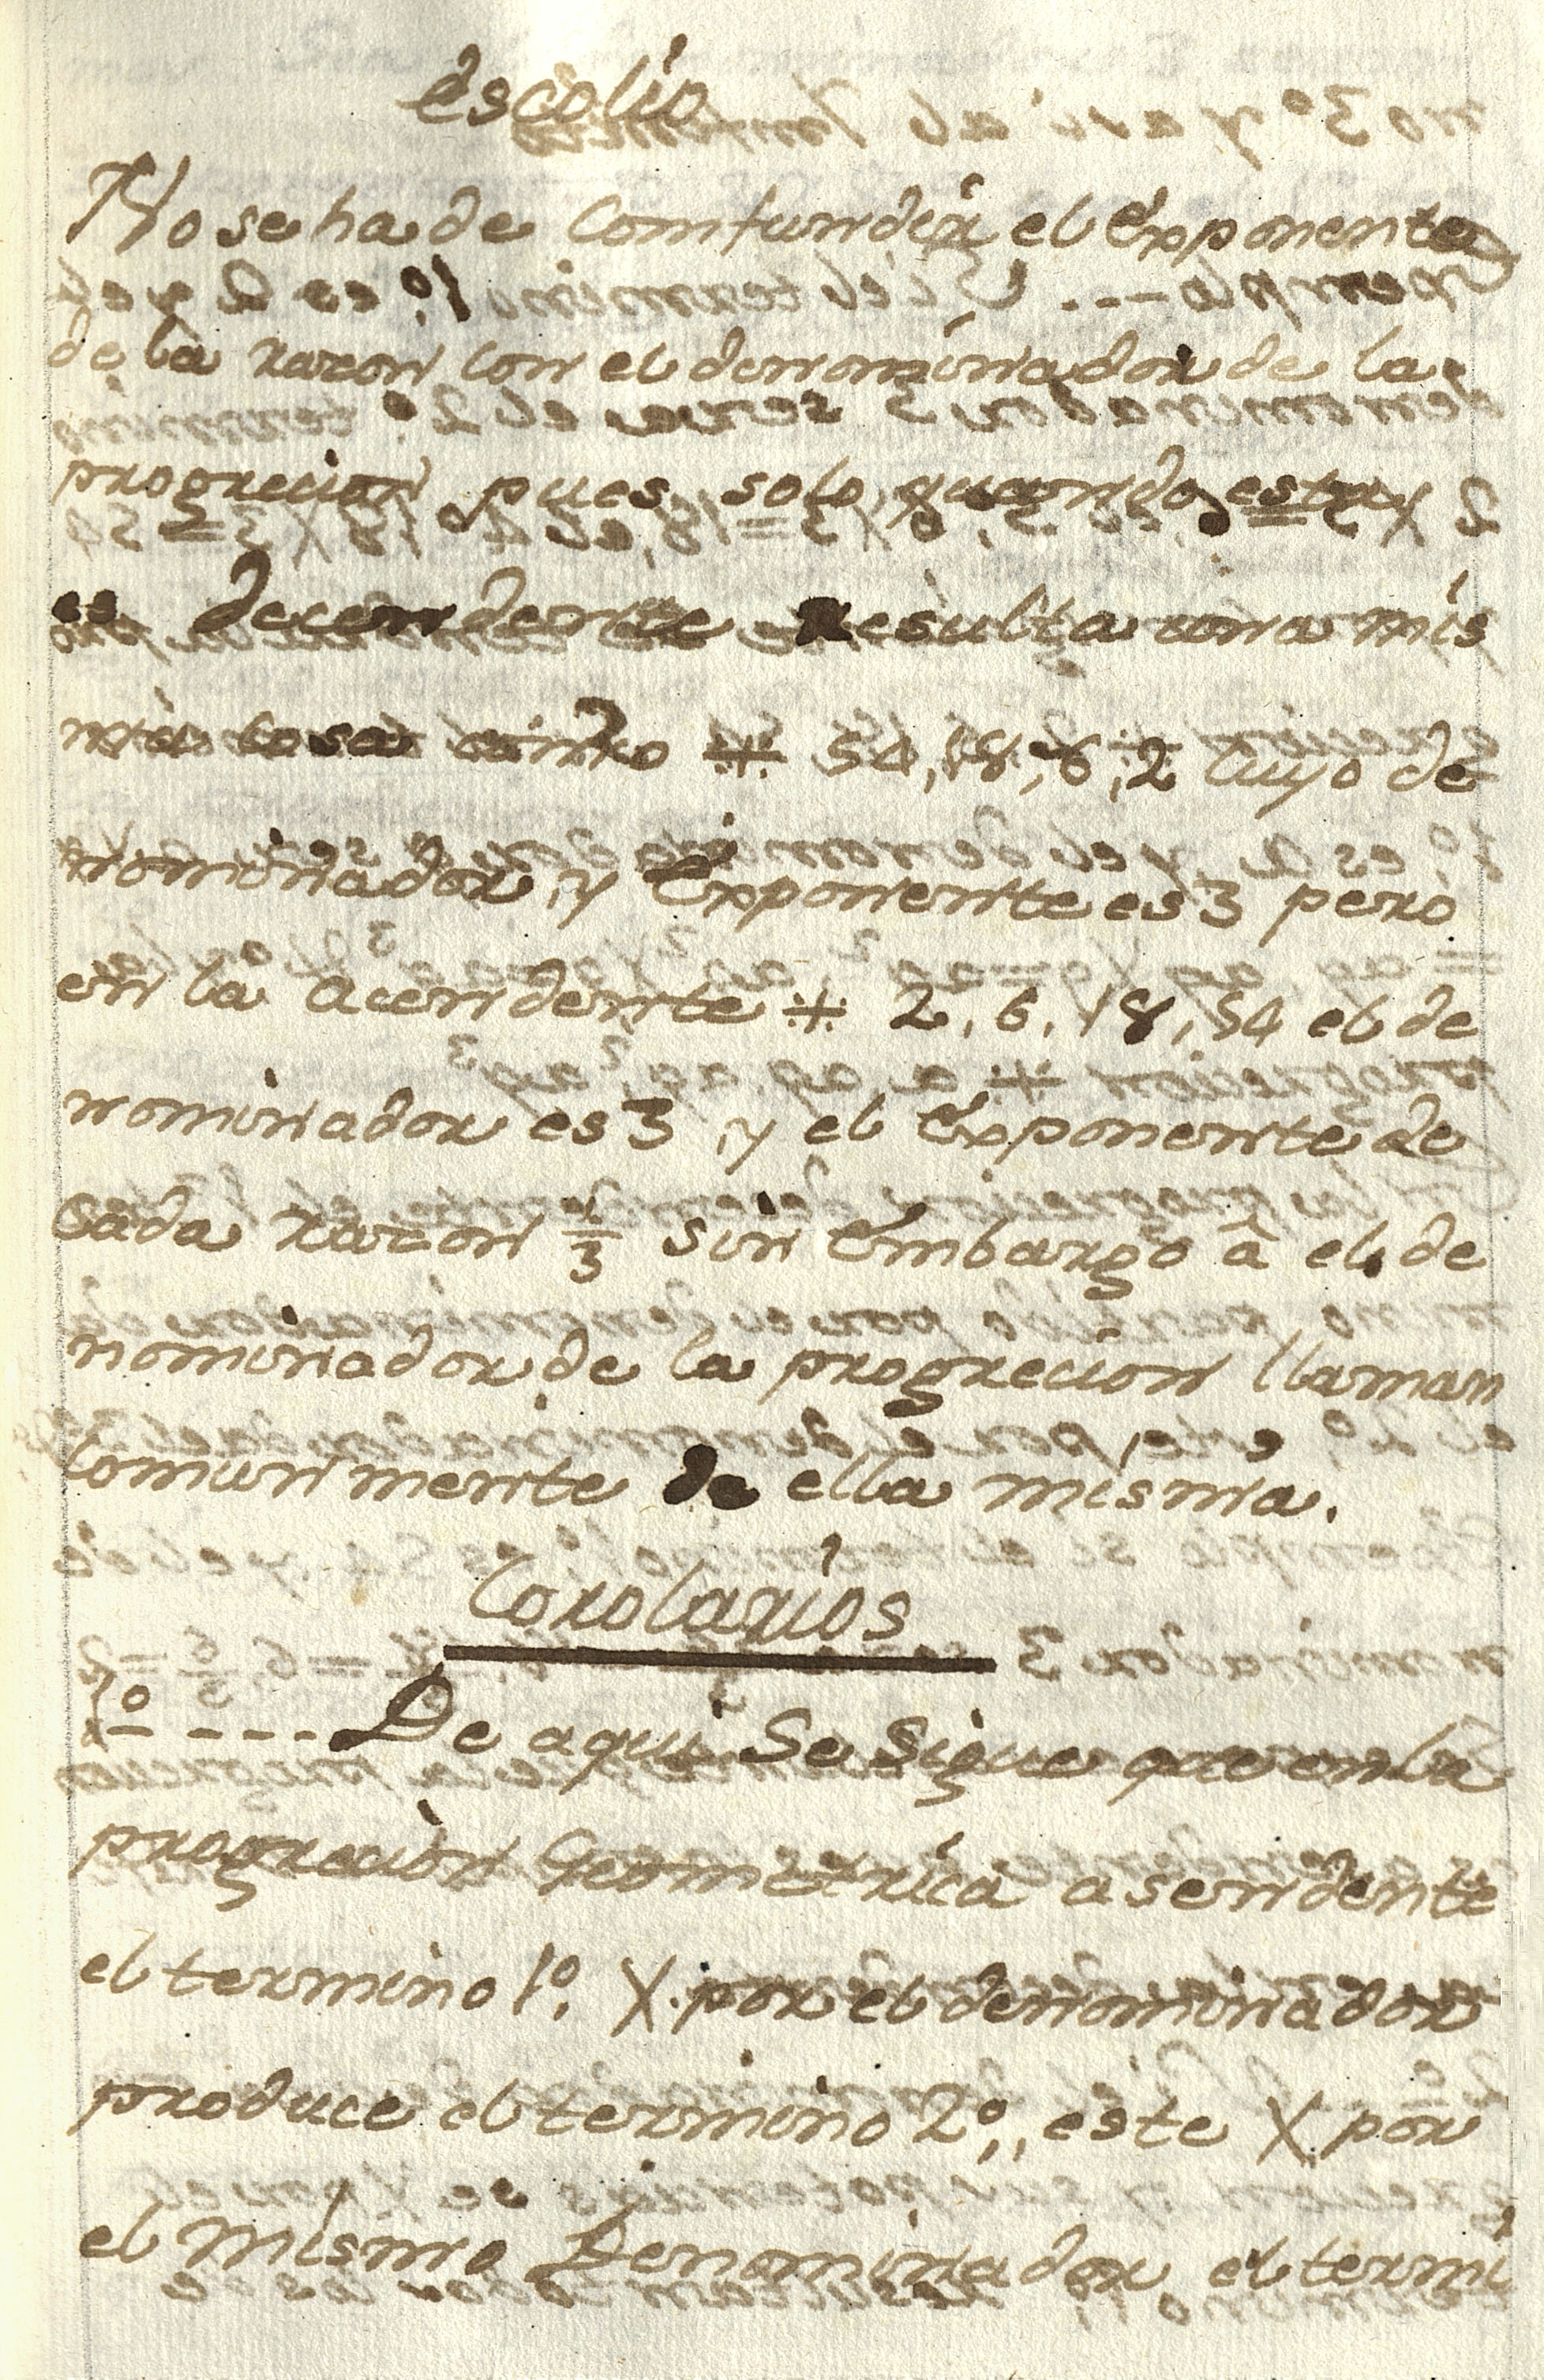 escolio
No se ha de Comfundir el Expponente
de la razon con el denominador de la
progrecion pues solo quando esta
es decendente Resulta una mis
ma cosa ÷÷ 54, 18, 6, 2 Cuyo de
nominador, y Expponentte es 3 pero
en la acendente ÷÷ 2, 6, 18, 54 el de
nominador es 3, y el Expponente de
Cada razon 1/3 sin Embargo à el de
nominador de la progrecion llaman
Comunmente de ella misma.
Corolarios
1º ---- De aqui Se Sigue que en la
progrecion Geometrica asendente
el termino 1º, X por el denominador
produce el termino 2º,, este X por
el mismo Denominador el termi